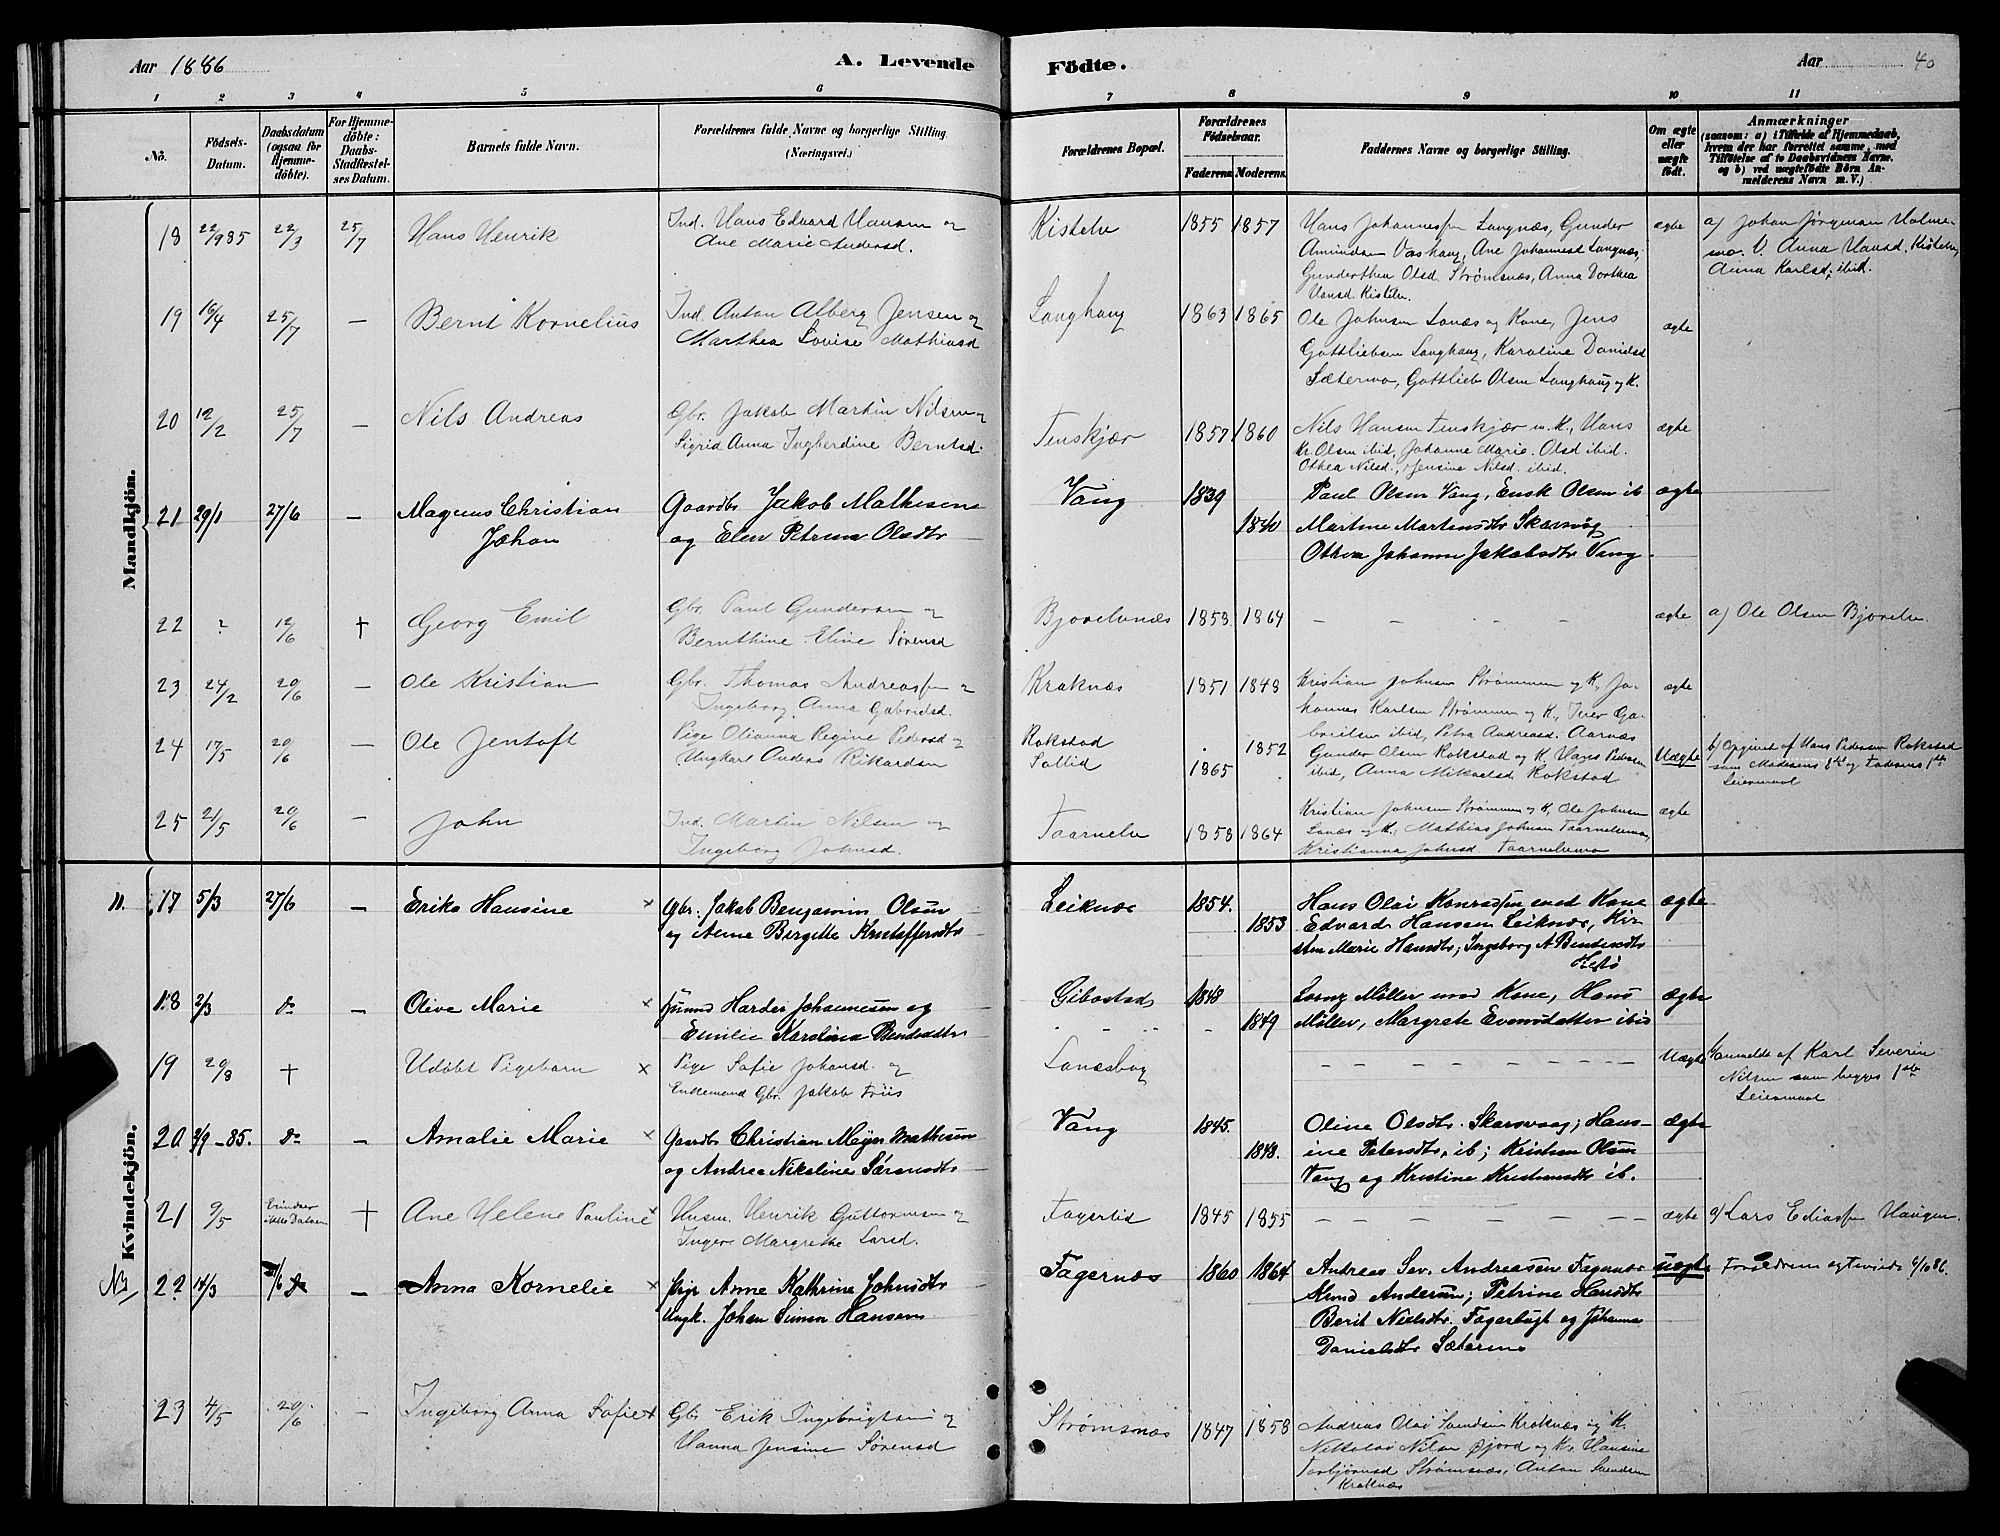 Aar 1886
A. Levende Födte.
Aar 40
1 2 3 4 5 6 7 8 9 10 11
No. Födsels-Datum. Daabsdatum (ogsaa for Hjemme-döbte). For Hjemme-döbte: Daabs-Stadfæstel-ses Datum. Barnets fulde Navn. Forældrenes fulde Navne og borgerlige Stilling. (Næringsvei.) Forældrenes Bopæl. Forældrenes Födselsaar. Faderens Moderens. Faddernes Navne og borgerlige Stilling. Om ægte eller uægte födt. Anmærkninger (saasom: a) i Tilfælde af Hjemmedaab, hvem der har forrettet samme, med Tilföielse af to Daabsvidners Navne, og b) ved uægtefödte Börn Anmelderens Navn m. V.)
Mandkjön.
18 22/9 85 22/3 25/7 Hans Henrik Ind. Hans Edvard Hansen og Kistelv 1855 1857 Hans Johannessen Langnæs, Gunder ægte a) Johan Jørgensen
Ane Marie Andersd. Amundsen Vashaug, Ane Johannesd Langnæs, V. Anna Hansd. Kistelv,
Gunderthea Olsd. Strømsnæs, Anna Dorthea Anna Karlsd. ibid.
Hansd. Kistelv.
19 16/4 25/7 — Bernt Kornelius Ind. Anton Alberg Jensen og Langhaug 1863 1865 Ole Johnsen Lanæs og Kone, Jens ægte
Marthea Lovise Mathiasd Gottliebsen Langhaug, Karoline Danielsd
Sætermo, Gottlieb Olsen Langhaug og K.
20 12/2 25/7 — Nils Andreas Gbr. Jakob Martin Nilsen og Tenskjær 1857 1860 Nils Hansen Tenskjær m. K., Hans ægte
Sigrid Anna Ingberdine Berntsd. Kr. Olsen ibid, Johanne Marie Olsd ibid.
Othea Nilsd., Jensine Nilsd. ibid.
21 29/1 27/6 — Magnus Christian Gaardbr Jakob Mathisen Vang 1839 Paul Olsen Vang, Olsen ib ægte
Johan og Elen Petrina Olsdtr 1840 Martine Martinsdtr Skarsvåg
Othea Johanna Jakobsdtr Vang.
22 ? 12/6 † Georg Emil Gbr. Paul Gundersen og Bjorelvnæs 1853 1864 — — — — ægte a) Ole Olsen Bjorelv
Bernthine Eline Sørensd
23 24/2 20/6 — Ole Kristian Gbr. Thomas Andreassen og Kraknæs 1851 1848 Kristian Johnsen Strømmen og K, Jo- ægte
Ingeborg Anna Gabrielsd. hannes Karlsen Strømmen og K, Iver Ga-
brielsen ibid, Petra Andreasd. Aarnæs
24 17/5 20/6 — Ole Jentoft Pige Olianna Regine Pedersd og Rokstad 1852 Gunder Olsen Rokstad og K. Hans Pedersen Uægte b) Opgivet af Hans Pedersen Rokstad
Ungkarl Anders Rikardsen Sollid 1865 ibid, Anna Mikalsd Rokstad som Moderens og Faderens 1ste
Leiermaal
25 21/5 20/6 — John Ind. Martin Nilsen og Taarnelv 1858 1864 Kristian Johnsen Strømmen og K, Ole Johnsen ægte
Ingeborg Johnsd. Lanæs og K, Mathias Johnsen Taarnelvmo,
Kristianna Johnsd Taarnelvmo
Kvindekjön.
11. 17 5/3 27/6 — Erika Hansine × Gbr. Jakob Benjamin Olsen Leiknæs 1854. Hans Olai Konradsen med Kone ægte
og Anne Birgitte Kristoffersdtr 1853 Edvard Hansen Leiknæs, Kir-
sten Marie Hansdtr, Ingeborg A Bentsendtr
18 2/3 do — Olive Marie × Harder Johannesen og Gibostad 1848 Møller med Kone, Hans ægte
Emilie Karolina Bendsdtr 1849 Møller, Margrete Evensdatter ibid
19 20/3 † Udøbt Pigebarn × Pige Sofie Johansd. og Lanesbog — — — — Uægte Anmeldt af Karl Severin
Enkemand Gbr. Jakob Friis Nilsen som begges 1ste
Leiermaal
20 3/9-85. do — Amalie Marie × Gaardbr Christian Meyer Mathisen Vang 1845. Oline Olsdtr. Skarsvaag; Hans- ægte
og Andrea Nikoline Sørensdtr 1848. ine Petersdtr, ib; Kristen Olsen
Vang og Kristine Kristensdtr ib.
21 9/5 Erindrer ikke Datoen † Ane Helene Pauline × Husm. Henrik Guttormsen og Fagerlid 1845 1855 — — — — ægte a) Lars Ediassen Haugen.
Inger Margrethe Larsd.
NB 22 14/3 — Anna Kornelie × Pige Anne Kathrine Johnsdtr Fagernæs 1860 1864 Andreas Sev. Andreasen Fagernæs uægte Forældrene egteviede 6/10 86.
Ungk. Johan Simon Hansen Amund Andersen; Petrine Hansdtr
Berit Nielsdtr. Fagerbugt og Johanna
Danielsdtr Sætermo
23 4/5 20/6 — Ingeborg Anna Sofie × Gbr Erik Ingebrigtsen og Strømsnæs 1847 1858 Andreas Olai Svendsen Kraknæs og K.
Hanna Jensine Sørensd Nikolai Nilsen Gjord og K. Hansine
Torbjørnsd Strømsnæs, Anton Svendsen
Kraknæs